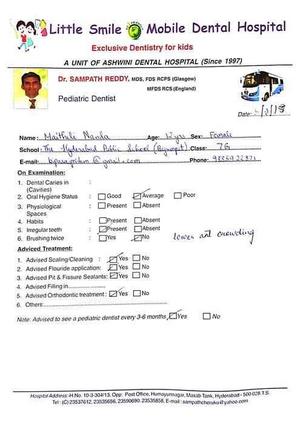 Little Smile Mobile Dental Hospital
Exclusive Dentistry for kids
A UNIT OF ASHWINI DENTAL HOSPITAL (Since 1997)
Dr. SAMPATH REDDY, MDS, FDS RCPS (Glasgow)
MFDS RCS (England)
Pediatric Dentist
Date:
Name: Maithili Age: 12yrs Sex: Female
School: The Hyderabad Public School (Begumpet) Class: 7G
E-mail: @gmail.com Phone:
On Examination:
1. Dental Caries in (Cavities) :
2. Oral Hygiene Status : Good Average Poor
3. Physiological Spaces : Present Absent
4. Habits : Present Absent
5. Irregular teeth : Present Absent
6. Brushing twice : Yes No lower ant crowding
Adviced Treatment:
1. Advised Scaling/Cleaning : Yes No
2. Advised Flouride application : Yes No
3. Advised Pit & Fissure Sealants : Yes No
4. Advised Filling in
5. Advised Orthodontic treatment : Yes No
6. Any Others
Note: Advised to see a pediatric dentist every 3-6 months Yes No
Hospital Address: H.No. 10-3-304/13, Opp. Post Office, Humayunnagar, Masab Tank, Hyderabad - 500 028 T.S.
Tel: (C) 23537612, 23535656, 23590690, 23535858. E-mail: sampathcheruku@yahoo.com